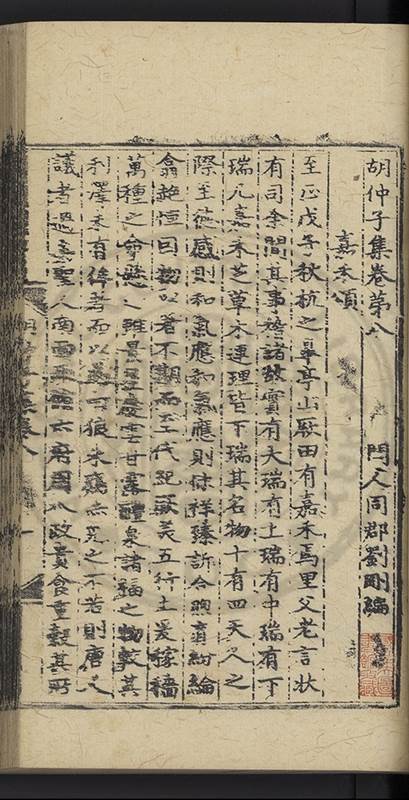 胡仲子集卷第八
門人同郡劉剛編
嘉禾頌
至正戊子秋杭之皐亭山駅田有嘉禾焉里父老言狀
有司余聞其事稽諸故實有大瑞有上瑞有中瑞有下
瑞凡嘉禾芝草木連理皆下瑞其名物十有四天人之
際至德感則和氣應和氣應則休祥臻訢合煦育紛綸
翕赩恒因物以著不期而至代紀厥美五行土爰稼穡
萬種之命懸人雖景星慶雲甘露醴泉諸福之物較其
利澤未有侔者而以
議者過矣聖人南面六府固八政貴食重穀其所